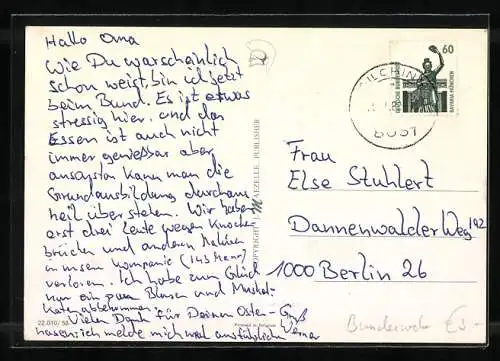 Hallo Oma
Wie Du warscheinlich
schon weist, bin ich jetzt
beim Bund. Es ist etwas
stressig hier. und das
Essen ist auch nicht
immer genießbar aber
ansonsten kann man die
Grundausbildung durchaus
heil überstehen. Wir haben
erst drei Leute wegen Knochen-
brüchen und anderen
in unser Kompanie (143 Mann)
verloren. Ich habe zum Glück
nur ein paar Blasen und Muskel-
kater abbekommen.
Vielen Dank für Deinen Oster-Gruß
hasen. ich melde mich mal ausführlicher Werner
22.010/58
Printed in Belgium
COPYRIGHT MALZELLE PUBLISHER
8031
60
DEUTSCHE BUNDESPOST
BAVARIA MÜNCHEN
Frau
Else Stuhlert
Dannenwalder Weg 192
1000 Berlin 26
Bundeswehr